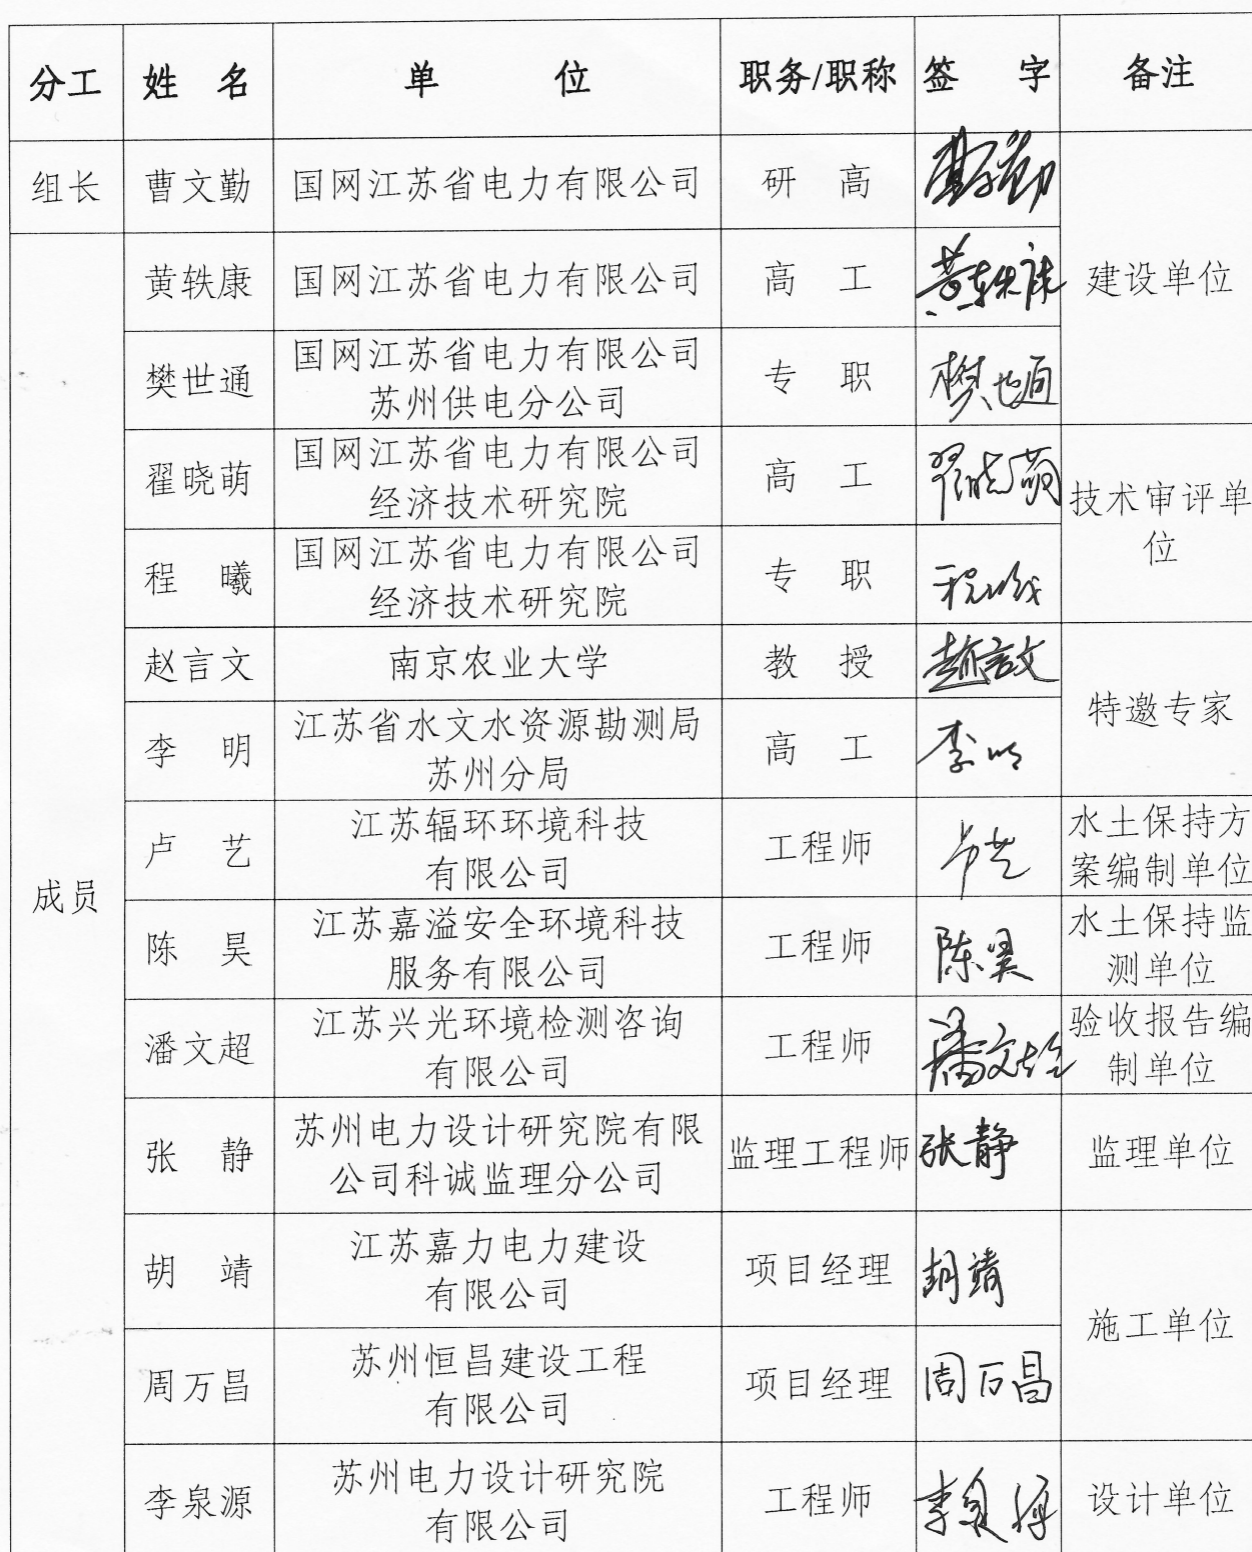 分工 姓 名 单 位 职务/职称 签 字 备注
组长 曹文勤 国网江苏省电力有限公司 研 高 曹文勤
建设单位
成员
黄轶康 国网江苏省电力有限公司 高 工 黄轶康
樊世通 国网江苏省电力有限公司
苏州供电分公司
专 职 樊世通
翟晓萌 国网江苏省电力有限公司
经济技术研究院
高 工 翟晓萌
技术审评单
位
程 曦 国网江苏省电力有限公司
经济技术研究院
专 职 程曦
赵言文 南京农业大学 教 授 赵言文
特邀专家
李 明 江苏省水文水资源勘测局
苏州分局
高 工 李明
卢 艺 江苏辐环环境科技
有限公司
工程师 卢艺
水土保持方
案编制单位
陈 昊 江苏嘉溢安全环境科技
服务有限公司
工程师 陈昊
水土保持监
测单位
潘文超 江苏兴光环境检测咨询
有限公司
工程师 潘文超
验收报告编
制单位
张 静 苏州电力设计研究院有限
公司科诚监理分公司
监理工程师 张静 监理单位
胡 靖 江苏嘉力电力建设
有限公司
项目经理 胡靖
施工单位
周万昌 苏州恒昌建设工程
有限公司
项目经理 周万昌
李泉源 苏州电力设计研究院
有限公司
工程师 李泉源 设计单位